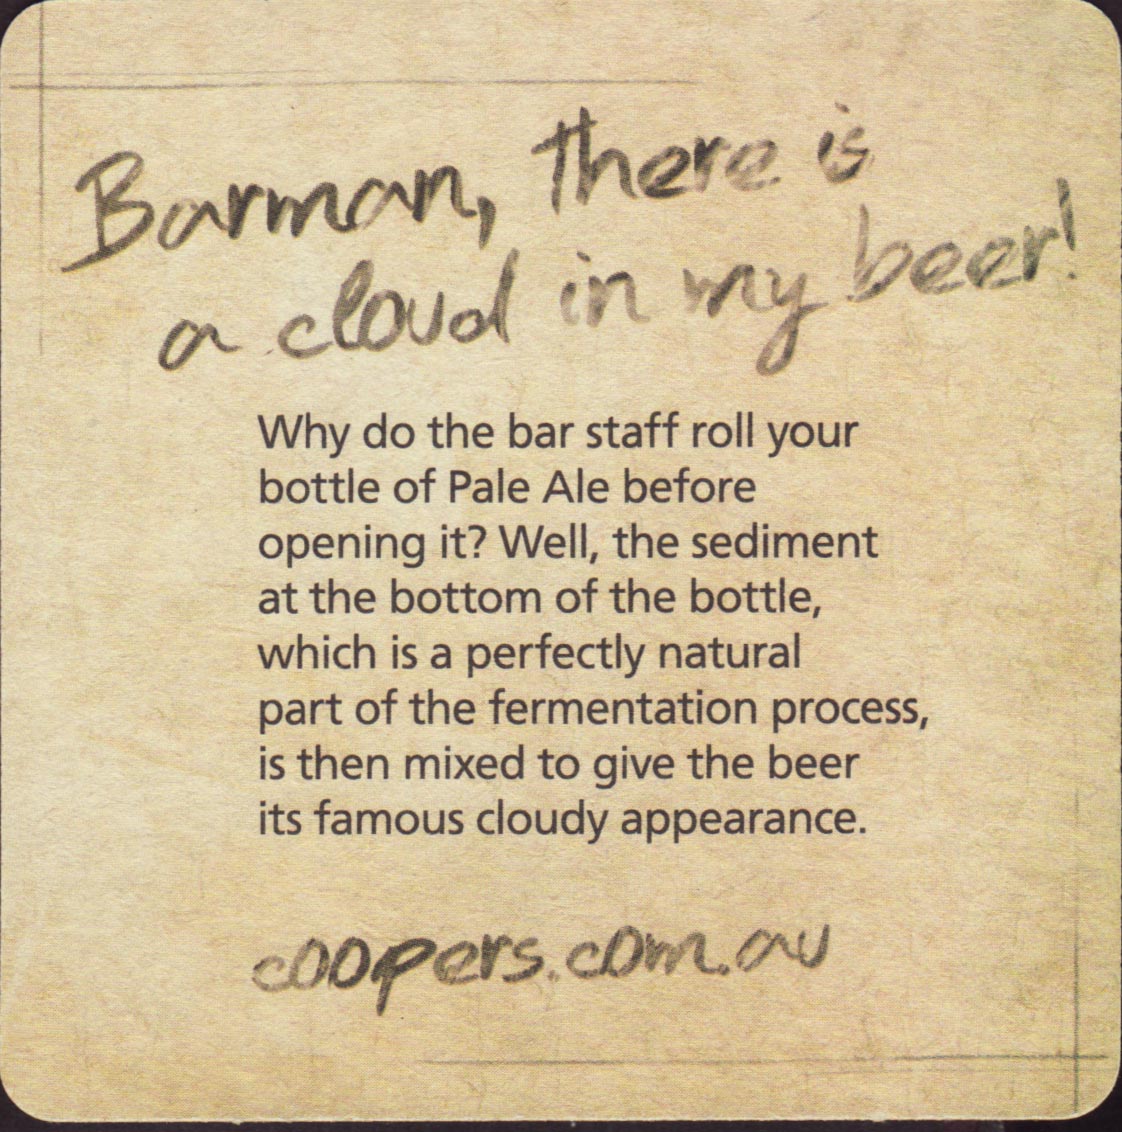 Barman, there is
a cloud in my beer!
Why do the bar staff roll your
bottle of Pale Ale before
opening it? Well, the sediment
at the bottom of the bottle,
which is a perfectly natural
part of the fermentation process,
is then mixed to give the beer
its famous cloudy appearance.
coopers.com.au